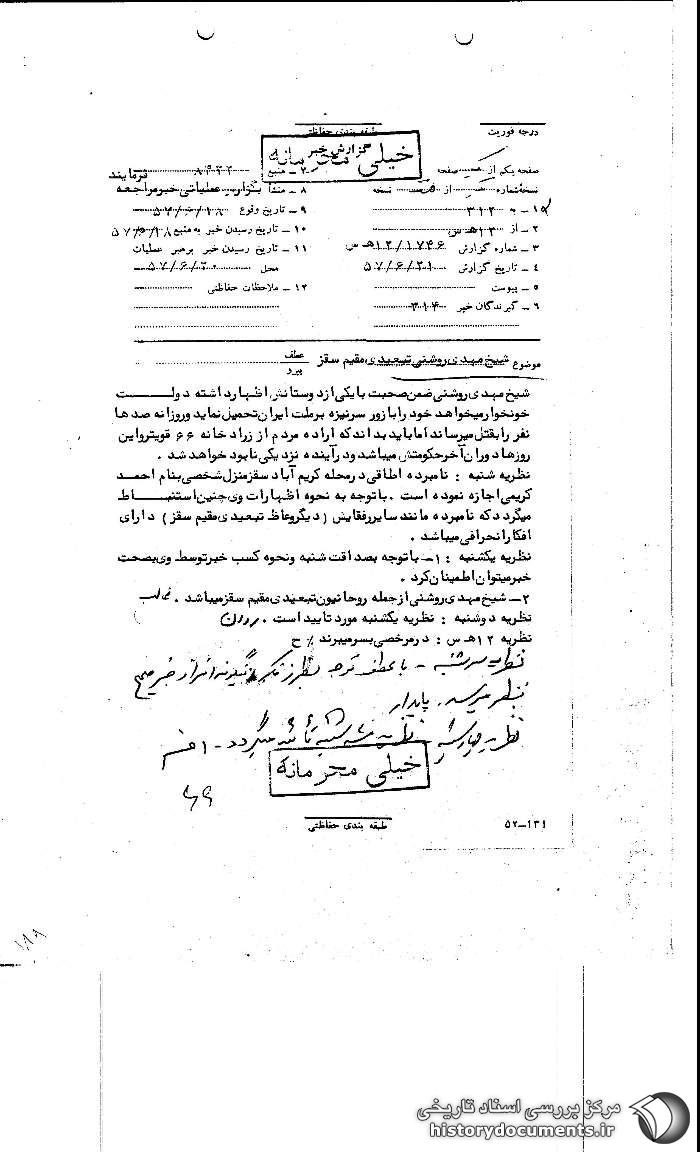 درجه فوریت
طبقه بندی حفاظتی
گزارش خبر
خیلی محرمانه
صفحه یکم از یک صفحه
نسخه شماره از نسخه
۱ـ به ۳۱۲
۲ـ از ۱۲ هـ س
۳ـ شماره گزارش ۱۲/۱۷۴۶ هـ س
۴ـ تاریخ گزارش ۵۷/۶/۲۱
۵ـ پیوست
۶ـ گیرندگان خبر ۳۱۴
۷ـ منبع ۸۹۲۲
۸ـ منشأ بگزارش عملیاتی خبر مراجعه فرمایند
۹ـ تاریخ وقوع ۵۷/۶/۱۸
۱۰ـ تاریخ رسیدن خبر به منبع ۵۷/۶/۱۸
۱۱ـ تاریخ رسیدن خبر برهبر عملیات
محل ۵۷/۶/۲۰
۱۲ـ ملاحظات حفاظتی
موضوع شیخ مهدی روشنی تبعیدی مقیم سقز عطف
پیرو
شیخ مهدی روشنی ضمن صحبت با یکی از دوستانش اظهار داشته دولت
خونخوار میخواهد خود را با زور سرنیزه برملت ایران تحمیل نماید وروزانه صدها
نفر را بقتل میرساند اما باید بداند که اراده مردم از زراد خانه ۶۶ قویتر واین
روزها دوران آخر حکومتش میباشد ودر آینده نزدیکی نابود خواهد شد .
نظریه شنبه : نامبرده اطاقی در محله کریم آباد سقز منزل شخصی بنام احمد
کریمی اجازه نموده است . با توجه به نحوه اظهارات وی چنین استنباط
میگردد که نامبرده مانند سایر رفقایش ( دیگر وعاظ تبعیدی مقیم سقز ) دارای
افکار انحرافی میباشد .
نظریه یکشنبه : ۱ـ با توجه بصداقت شنبه ونحوه کسب خبر توسط وی بصحت
خبر میتوان اطمینان کرد .
۲ـ شیخ مهدی روشنی از جمله روحانیون تبعیدی مقیم سقز میباشد .
نظریه دوشنبه : نظریه یکشنبه مورد تایید است .
نظریه ۱۲ هـ س : در مرخصی بسر میبرند / ح
نظریه سه شنبه ـ با عطف توجه بطرز تفکر اینگونه افراد خبر صحیح
بنظر میرسد . پایدار
نظریه چهارشنبه ـ نظریه سه شنبه تأئید میگردد ـ
خیلی محرمانه
طبقه بندی حفاظتی
۵۲ـ۱۳۱
مرکز بررسی اسناد تاریخی
historydocuments.ir